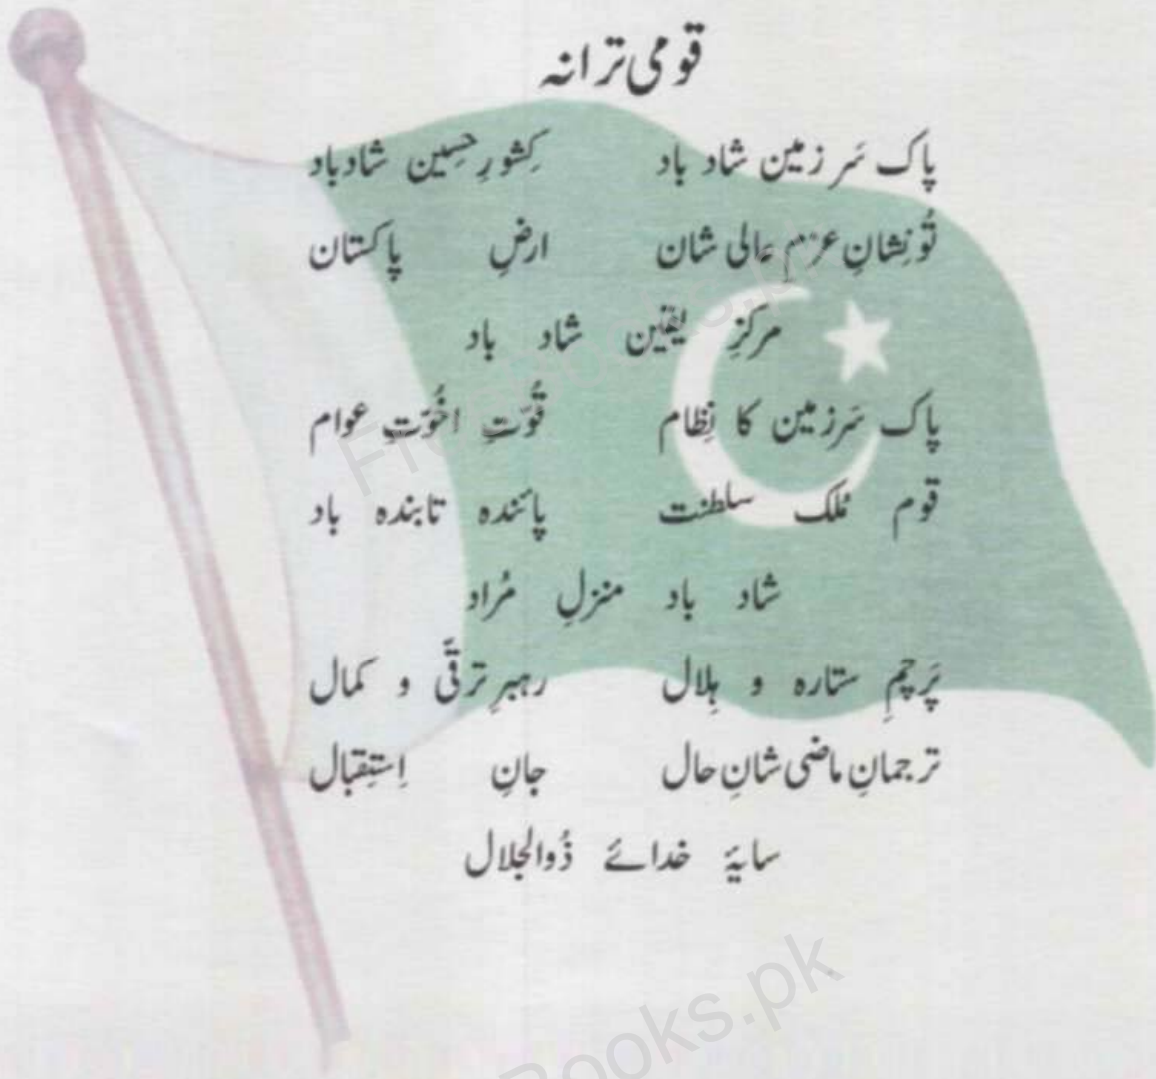 قومی ترانہ
پاک سَر زمین شاد باد کِشورِ حسِین شادباد
تُو نِشانِ عزمِ عالی شان ارضِ پاکستان
مرکزِ یقین شاد باد
پاک سَرزمین کا نِظام قُوّتِ اخُوّتِ عوام
قوم مُلک سلطنت پائندہ تابندہ باد
شاد باد منزلِ مُراد
پَرچمِ ستارہ و ہِلال رہبرِ ترقّی و کمال
ترجمانِ ماضی شانِ حال جانِ اِستِقبال
سایۂ خدائے ذُوالجلال